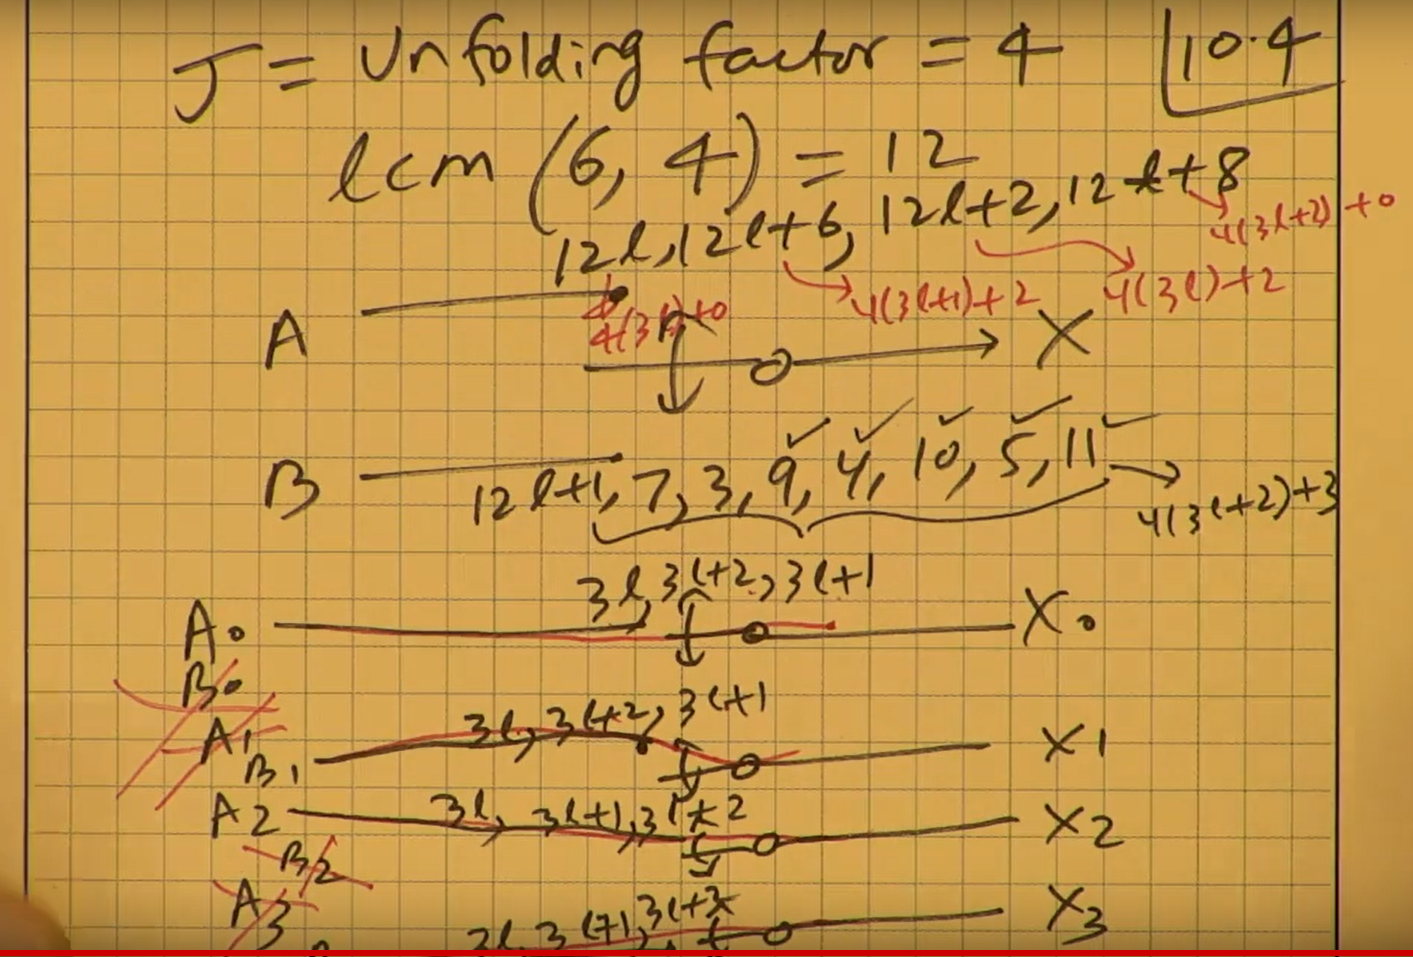 J = Unfolding factor = 4
10.4
lcm (6, 4) = 12
12l, 12l+6, 12l+2, 12l+8
4(3l+2)+0
4(3l+1)+2
4(3l)+2
4(3l)+0
A
X
B
12l+1, 7, 3, 9, 4, 10, 5, 11
4(3l+2)+3
3l, 3l+2, 3l+1
A0
X0
B0
3l, 3l+2, 3l+1
A1
B1
X1
A2
3l, 3l+1, 3l+2
X2
B2
A3
3l, 3l+1,
X3